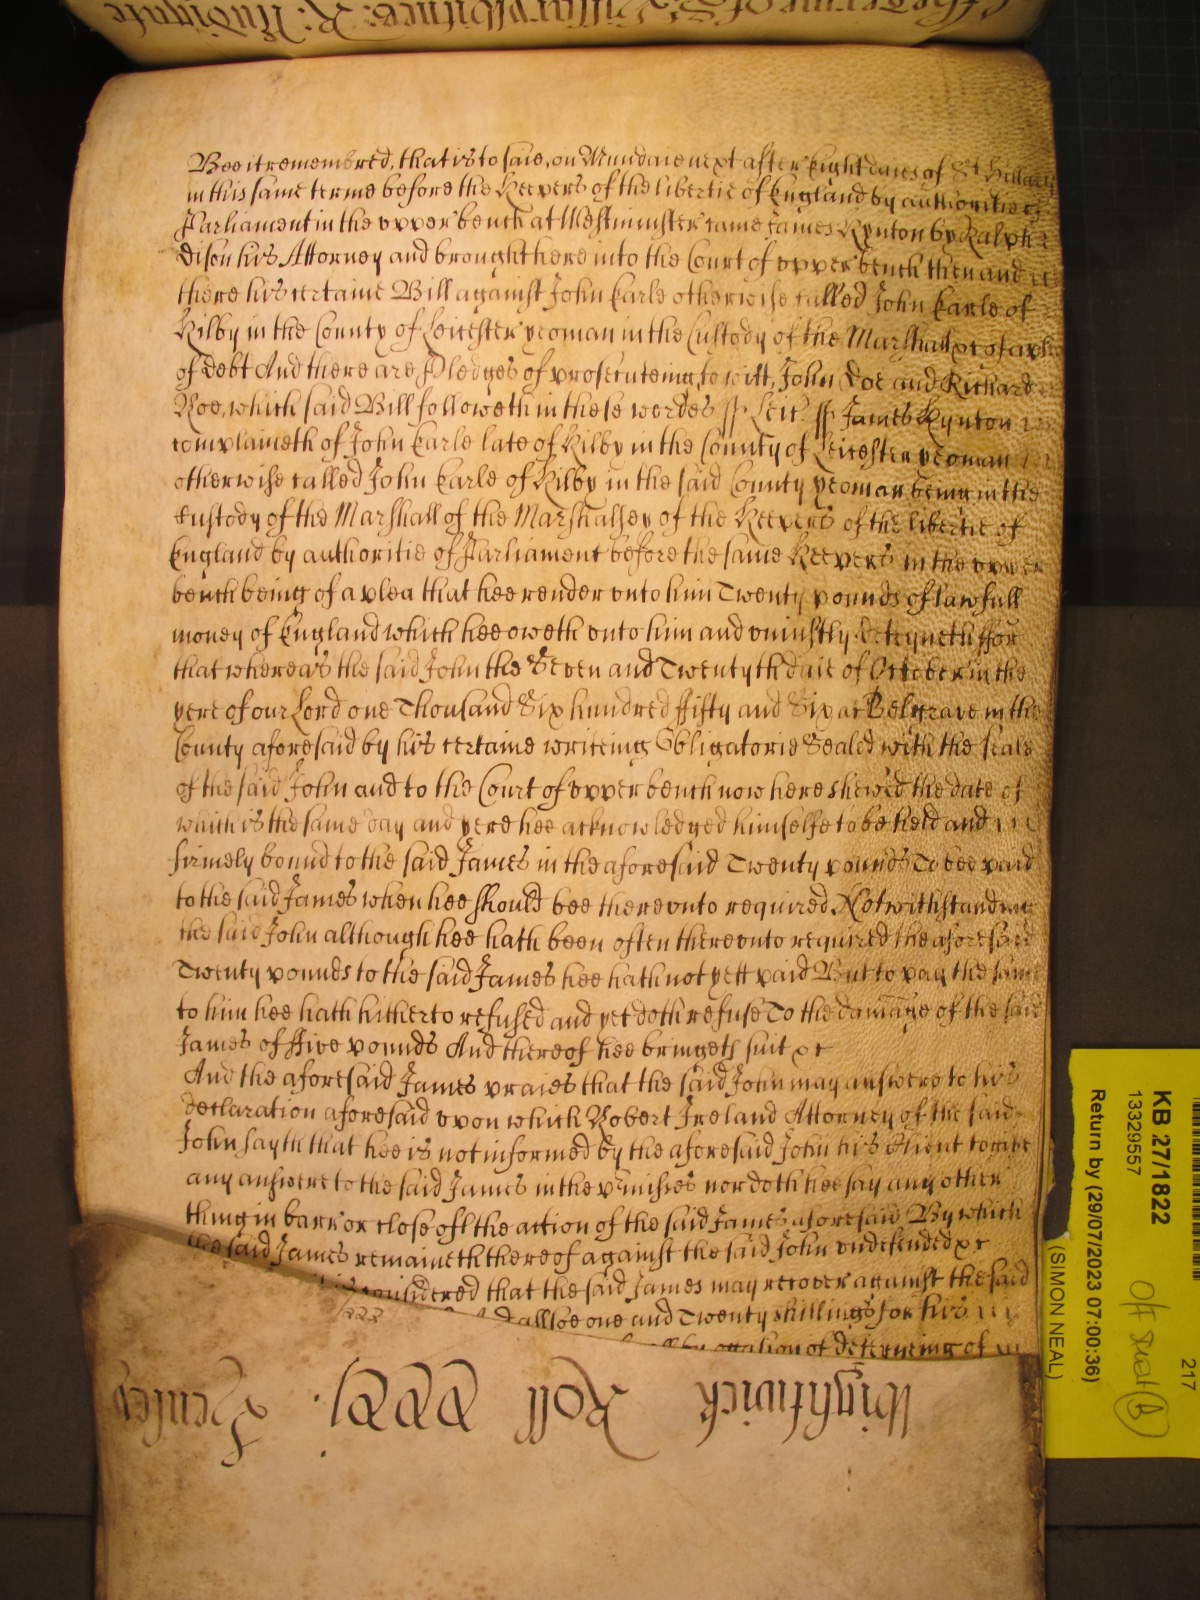 Bee it remembred, that is to saie, on Mundaie next after Eight daies of St Hillary
in this same terme before the Keepers of the libertie of England by authoritie of
Parliament in the upper bench at Westminster came James Kynton by Ralph
dison his Attorney and brought here into the Court of upper bench then and
there his certaine Bill against John Earle otherwise called John Earle of
Kilby in the County of Leicester yeoman in the Custody of the Marshall &c of a plea
of debt And there are Pledges of prosecuteing, to witt, John Doe and Richard
Roe, which said Bill followeth in these wordes ss Leic ss James Kynton
complaineth of John Earle late of Kilby in the County of Leicester yeoman
otherwise called John Earle of Kilby in the said County yeoman being in the
Custody of the Marshall of the Marshalsey of the Keepers of the libertie of
England by authoritie of Parliament before the same Keepers in the upper
bench being of a plea that hee render unto him Twenty pounds of lawfull
money of England which hee oweth unto him and uniustly deteyneth ffor
that whereas the said John the Seven and Twentyth daie of October in the
yere of our Lord one Thousand Six hundred ffifty and Six at Belgrave in the
County aforesaid by his certaine writeing Obligatorie Sealed with the seale
of the said John and to the Court of upper bench now here shewed the date of
which is the same day and yere hee acknowledged himselfe to be held and
firmely bound to the said James in the aforesaid Twenty pounds To bee paid
to the said James when hee should bee thereunto required Notwithstanding
the said John although hee hath been often thereunto required the aforesaid
Twenty pounds to the said James hee hath not yett paid But to pay the same
to him hee hath hitherto refused and yet doth refuse To the damage of the said
James of ffive pounds And thereof hee bringeth suit &c
And the aforesaid James praies that the said John may answere to his
declaration aforesaid upon which Robert Ireland Attorney of the said
John sayth that hee is not informed by the aforesaid John his Client to give
any answere to the said James in the premisses nor doth hee say any other
thing in barr or close off the action of the said James aforesaid By which
the said James remaineth thereof against the said John undefended &c
considered that the said James may recover against the said
allsoe one and Twenty shillings for his
by occasion of deteyneing of
Wightwick Roll
KB 27/1822
13329557
Return by (29/07/2023 07:00:36)
(SIMON NEAL)
217